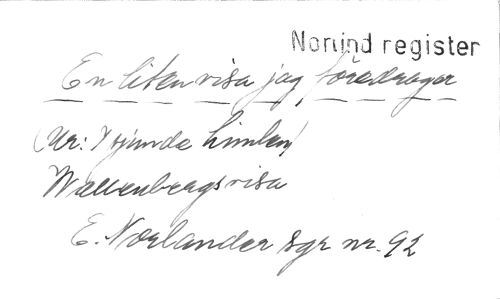 Norlind register
En liten visa jag föredrager
(Ur: I sjunde himlen)
Wallenbergsvisa
E. Norlander sgr nr. 92